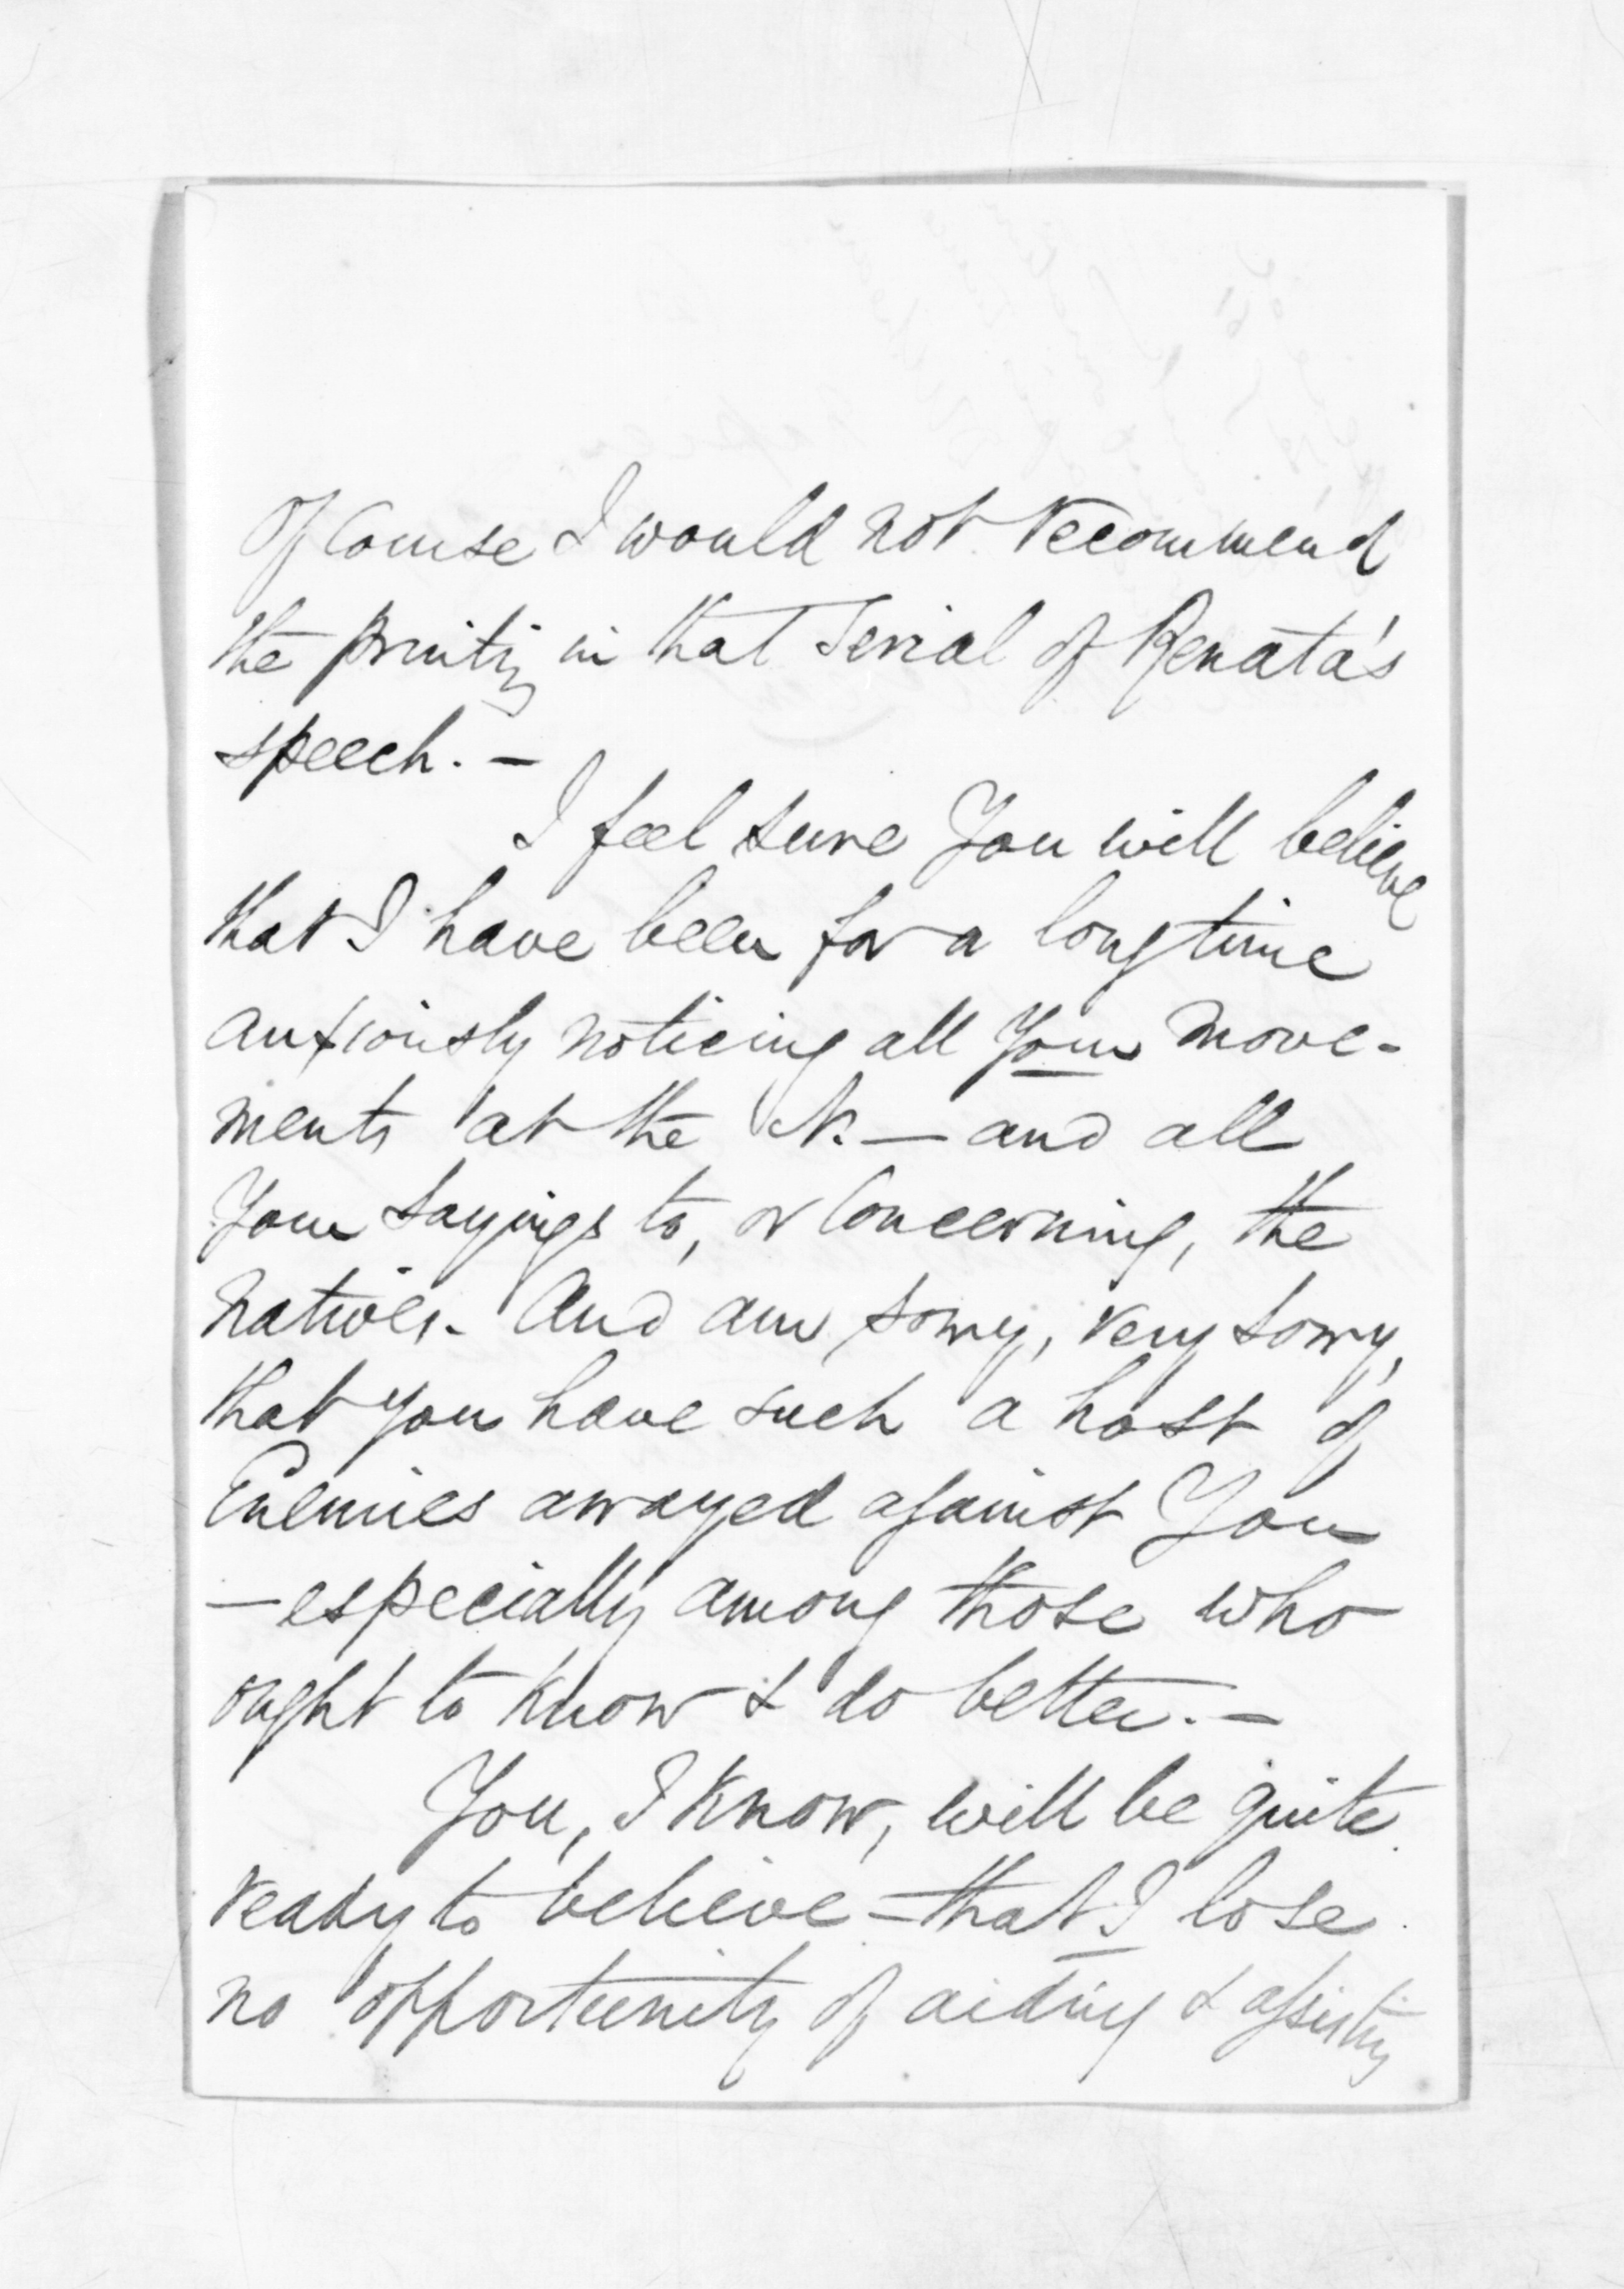 Of Course I would not recommend
the printing in that Serial of Renata's
speech. —
I feel sure You will believe
that I have been for a long time
anxiously noticing all Your move-
ments at the N. — and all
Your sayings to, or Concerning, the
natives. And am sorry, very sorry,
that you have such a host of
Enemies arrayed against You
— especially among those who
ought to know & do better. —
You, I know, will be quite
ready to believe — that I lose
no opportunity of aiding & assisting